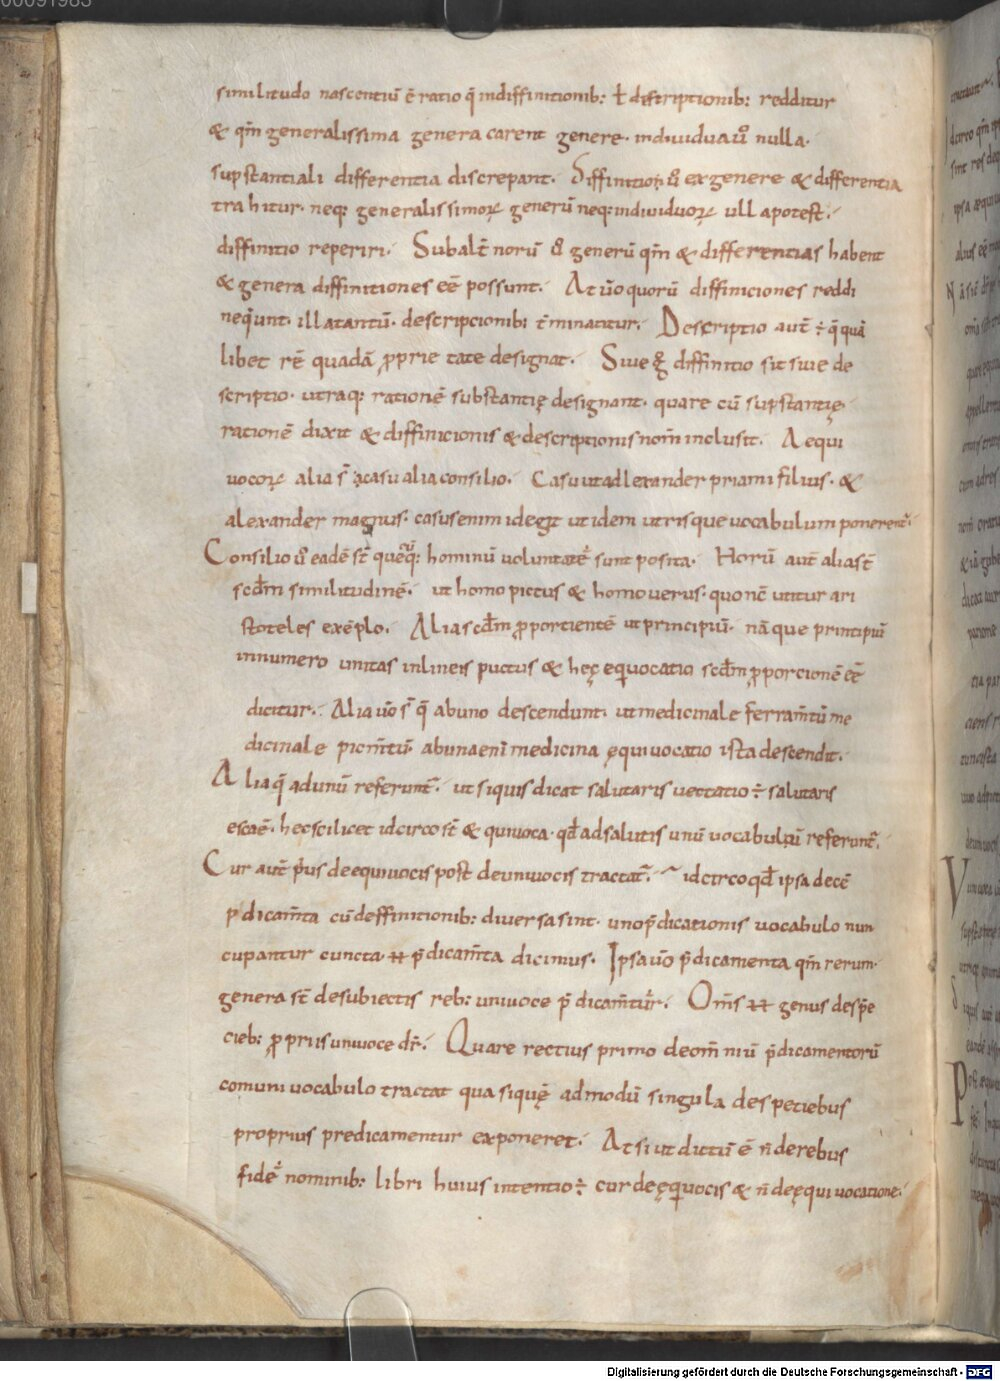 00091983
similitudo nascentiū ē ratio q̄ indiffinitionib: ɫ discriptionib: redditur
& qm̄ generalissima genera carent genere· indiuidua ū̊ nulla·
supstantiali differentia discrepant· Diffinitio ū̊ ex genere & differentia
trahitur· neq: generalissimoꝝ generū neq: indiuiduoꝝ ulla potest·
diffinitio reperiri· Subalt̄norū ū̊ generū qm̄ & differentias habent
& genera diffinitiones eē possunt· At ūo quorū diffiniciones reddi
neq̇unt· illa tantū· descripcionib: t̄minantur· Descriptio aut̄ ÷ q̄ quā
libet rē quadā ꝓprietate designat· Siue g̊ diffinitio sit siue de
scriptio· utraq: rationē substantię designant· quare cū supstantię
rationē dixit & diffinicionis & descriptionis nom̄ inclusit· Aequi
uocoꝝ alia s̄ a casu alia consilio· Casu ut adlexander priami filius· &
alexander magnus· casus enim id egit ut idem utrisque uocabulum ponerent᷑·
Consilio ū̊ eadē st̄ quęq: hominū uoluntate sunt posita· Horū aut̄ alia st̄
scdm̄ similitudinē· ut homo pictus & homo uerus· quo nc̄ utitur ari
stoteles exēplo· Alia scdm̄ ꝓportientē ut principiū· nāque principiū
in numero unitas in lineis puctus & hęc equocatio scdm̄ ꝓporcionē eē
dicitur· Alia ūo s̄ q̄ ab uno descendunt· ut medicinale ferram̄tū me
dicinale picm̄tū· ab una eni medicina ęquiuocatio ista descendit·
Alia q̄ ad unū referunt᷑· ut siquis dicat salutaris uectatio ÷ salutaris
esca ē· hec scilicet idcirco st̄ & quiuoca· qđ ad salutis unū uocabulū referunt᷑·
Cur aut̄ p̄us de equiuocis post de uniuocis tractat᷑· idcirco qđ ipsa decē
p̄dicam̄ta cū deffinitionib: diuersa sint· uno p̄dicationis uocabulo nun
cupantur cuncta· ħ p̄dicam̄ta dicimus· Ipsa ūo p̄dicamenta qm̄ rerum·
genera st̄ de subiectis reb: uniuoce p̄dicam̄tur· Om̄s ħ genus de spē
cieb: ꝓpriis uniuoce dr̄· Quare rectius primo de om̄niū p̄dicamentorū
comuni uocabulo tractat quasi quę admodū singula de speciebus
proprius predicamentur exponeret· At si ut dictū ē n̄ de rebus
fidē nominib: libri huius intentio ÷ cur de ęq̇uocis & n̄ de ęquiuocatione·
Digitalisierung gefördert durch die Deutsche Forschungsgemeinschaft - DFG